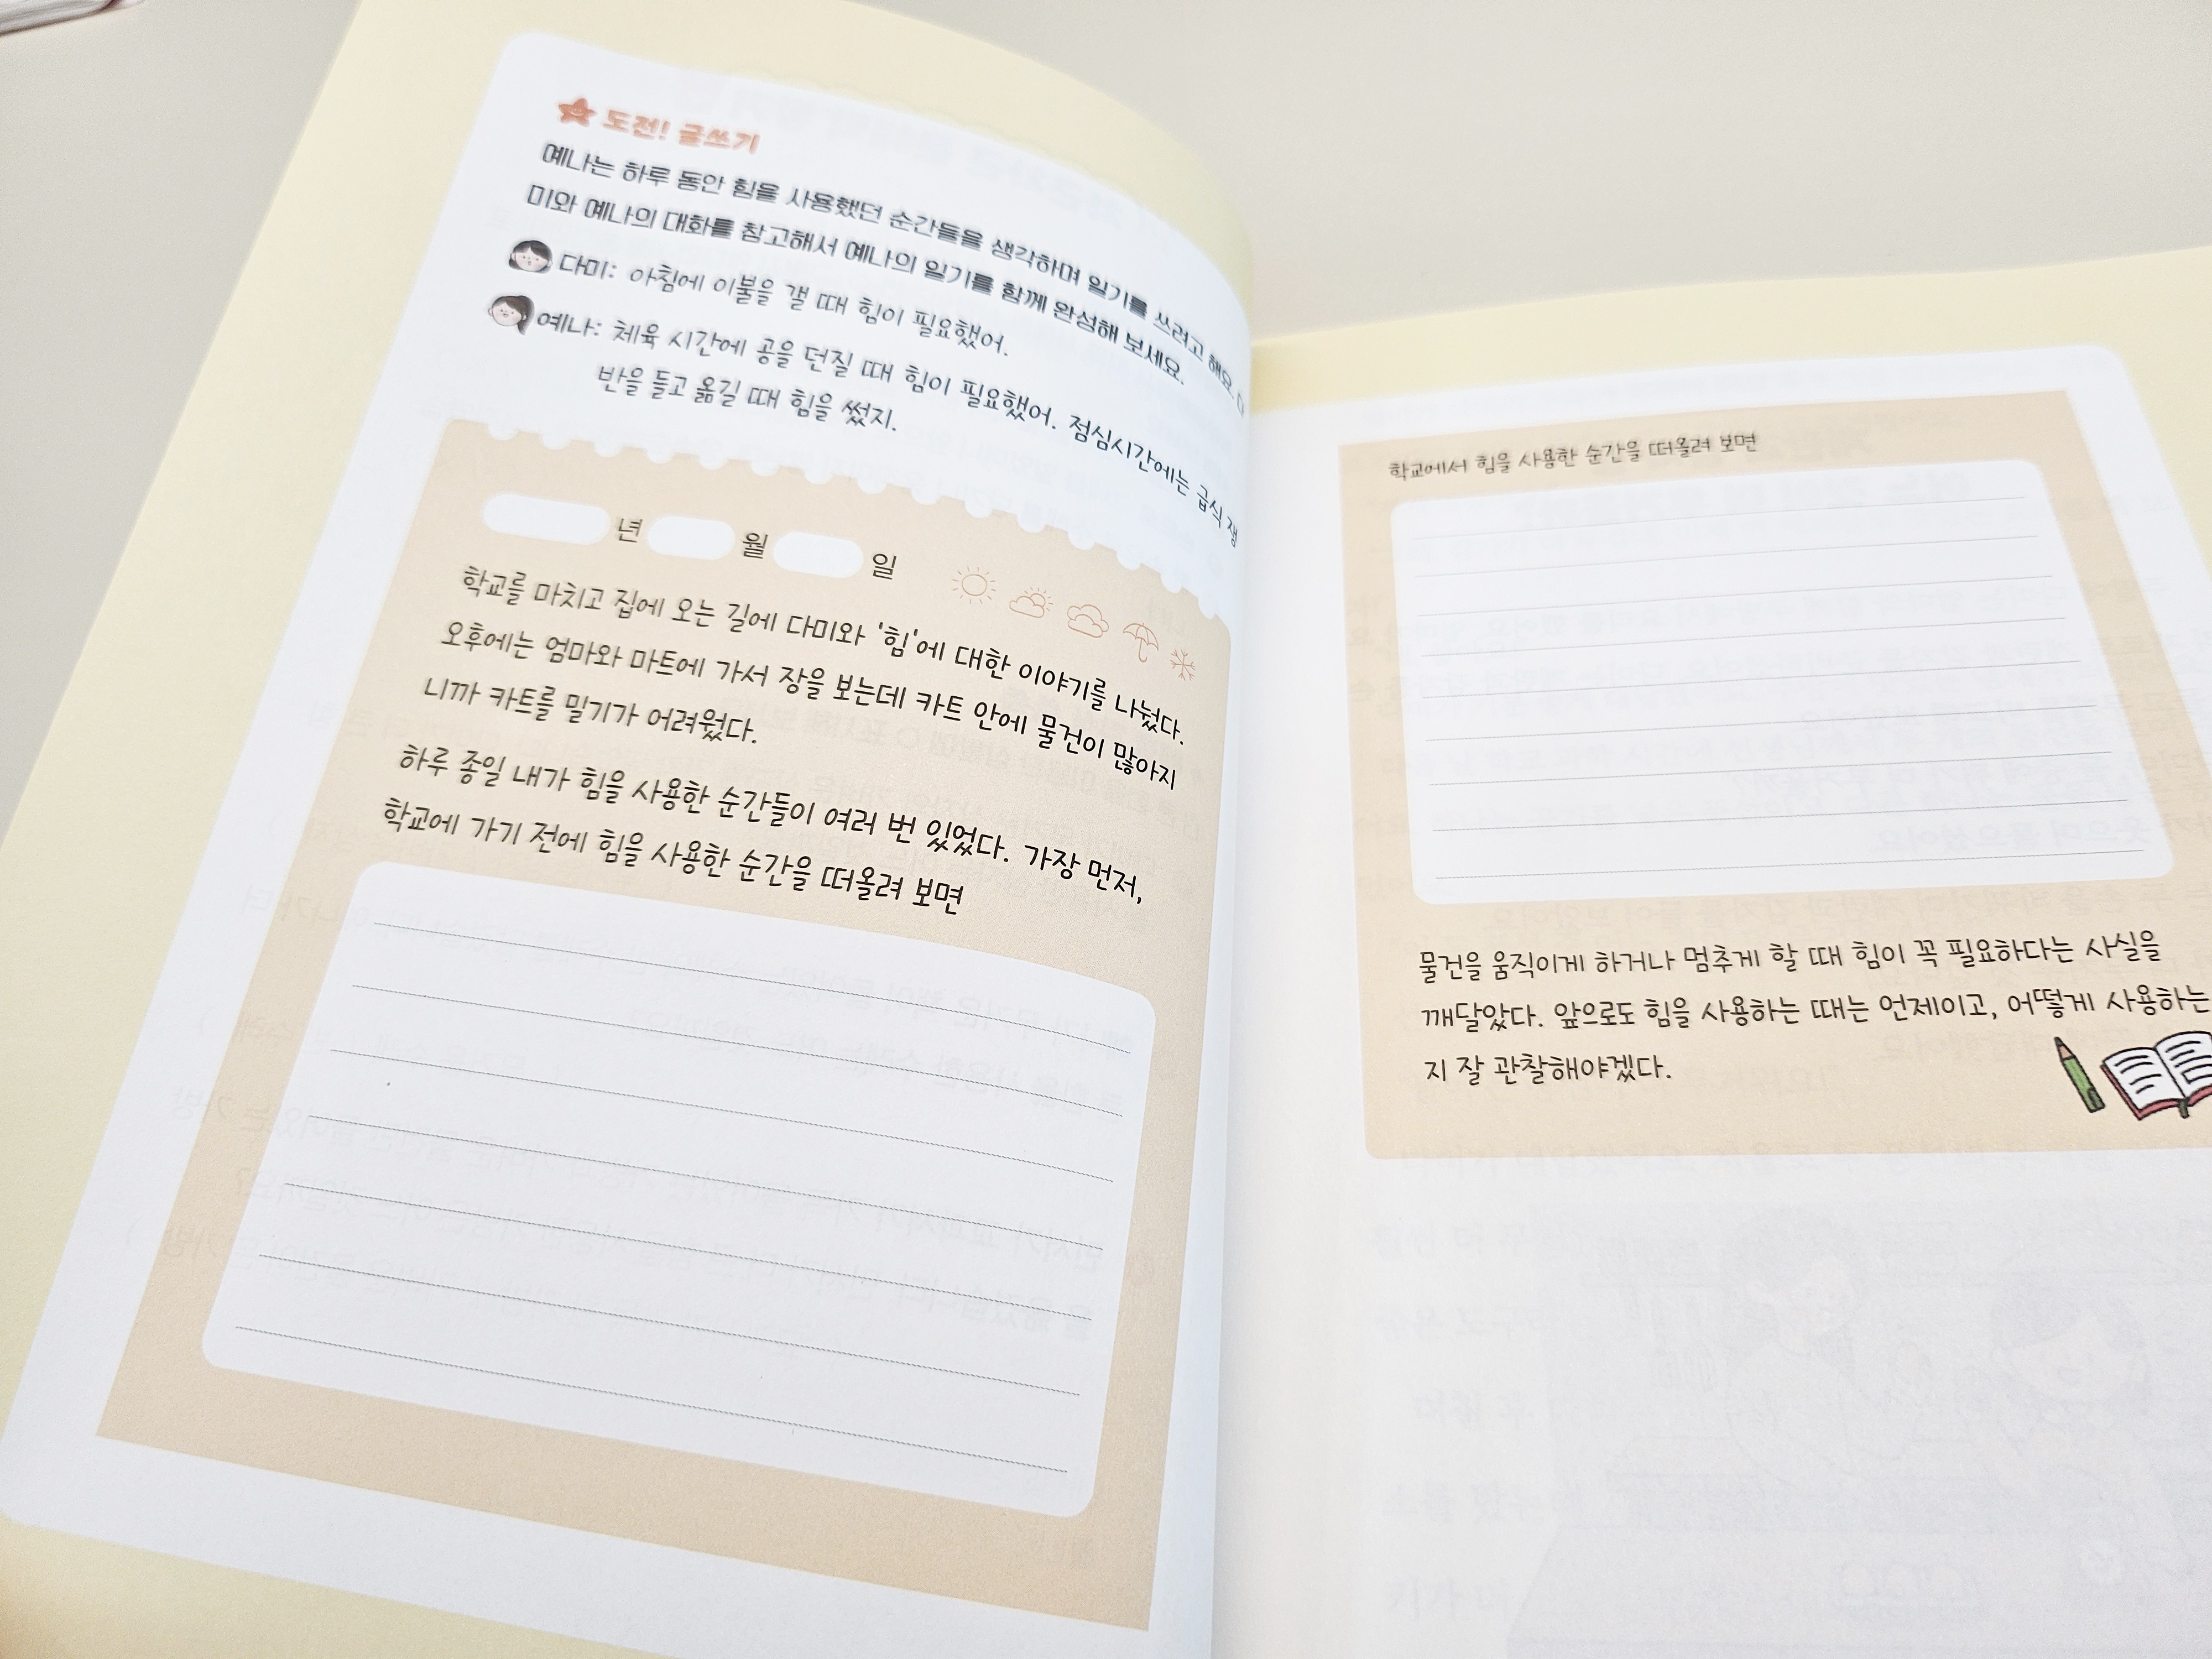 도전! 글쓰기
예나는 하루 동안 힘을 사용했던 순간들을 생각하며 일기를 쓰려고 해요. 다
미와 예나의 대화를 참고해서 예나의 일기를 함께 완성해 보세요.
다미: 아침에 이불을 갤 때 힘이 필요했어.
예나: 체육 시간에 공을 던질 때 힘이 필요했어. 점심시간에는 급식 쟁
반을 들고 옮길 때 힘을 썼지.
년 월 일
학교를 마치고 집에 오는 길에 다미와 '힘'에 대한 이야기를 나눴다.
오후에는 엄마와 마트에 가서 장을 보는데 카트 안에 물건이 많아지
니까 카트를 밀기가 어려웠다.
하루 종일 내가 힘을 사용한 순간들이 여러 번 있었다. 가장 먼저,
학교에 가기 전에 힘을 사용한 순간을 떠올려 보면
학교에서 힘을 사용한 순간을 떠올려 보면
물건을 움직이게 하거나 멈추게 할 때 힘이 꼭 필요하다는 사실을
깨달았다. 앞으로도 힘을 사용하는 때는 언제이고, 어떻게 사용하는
지 잘 관찰해야겠다.